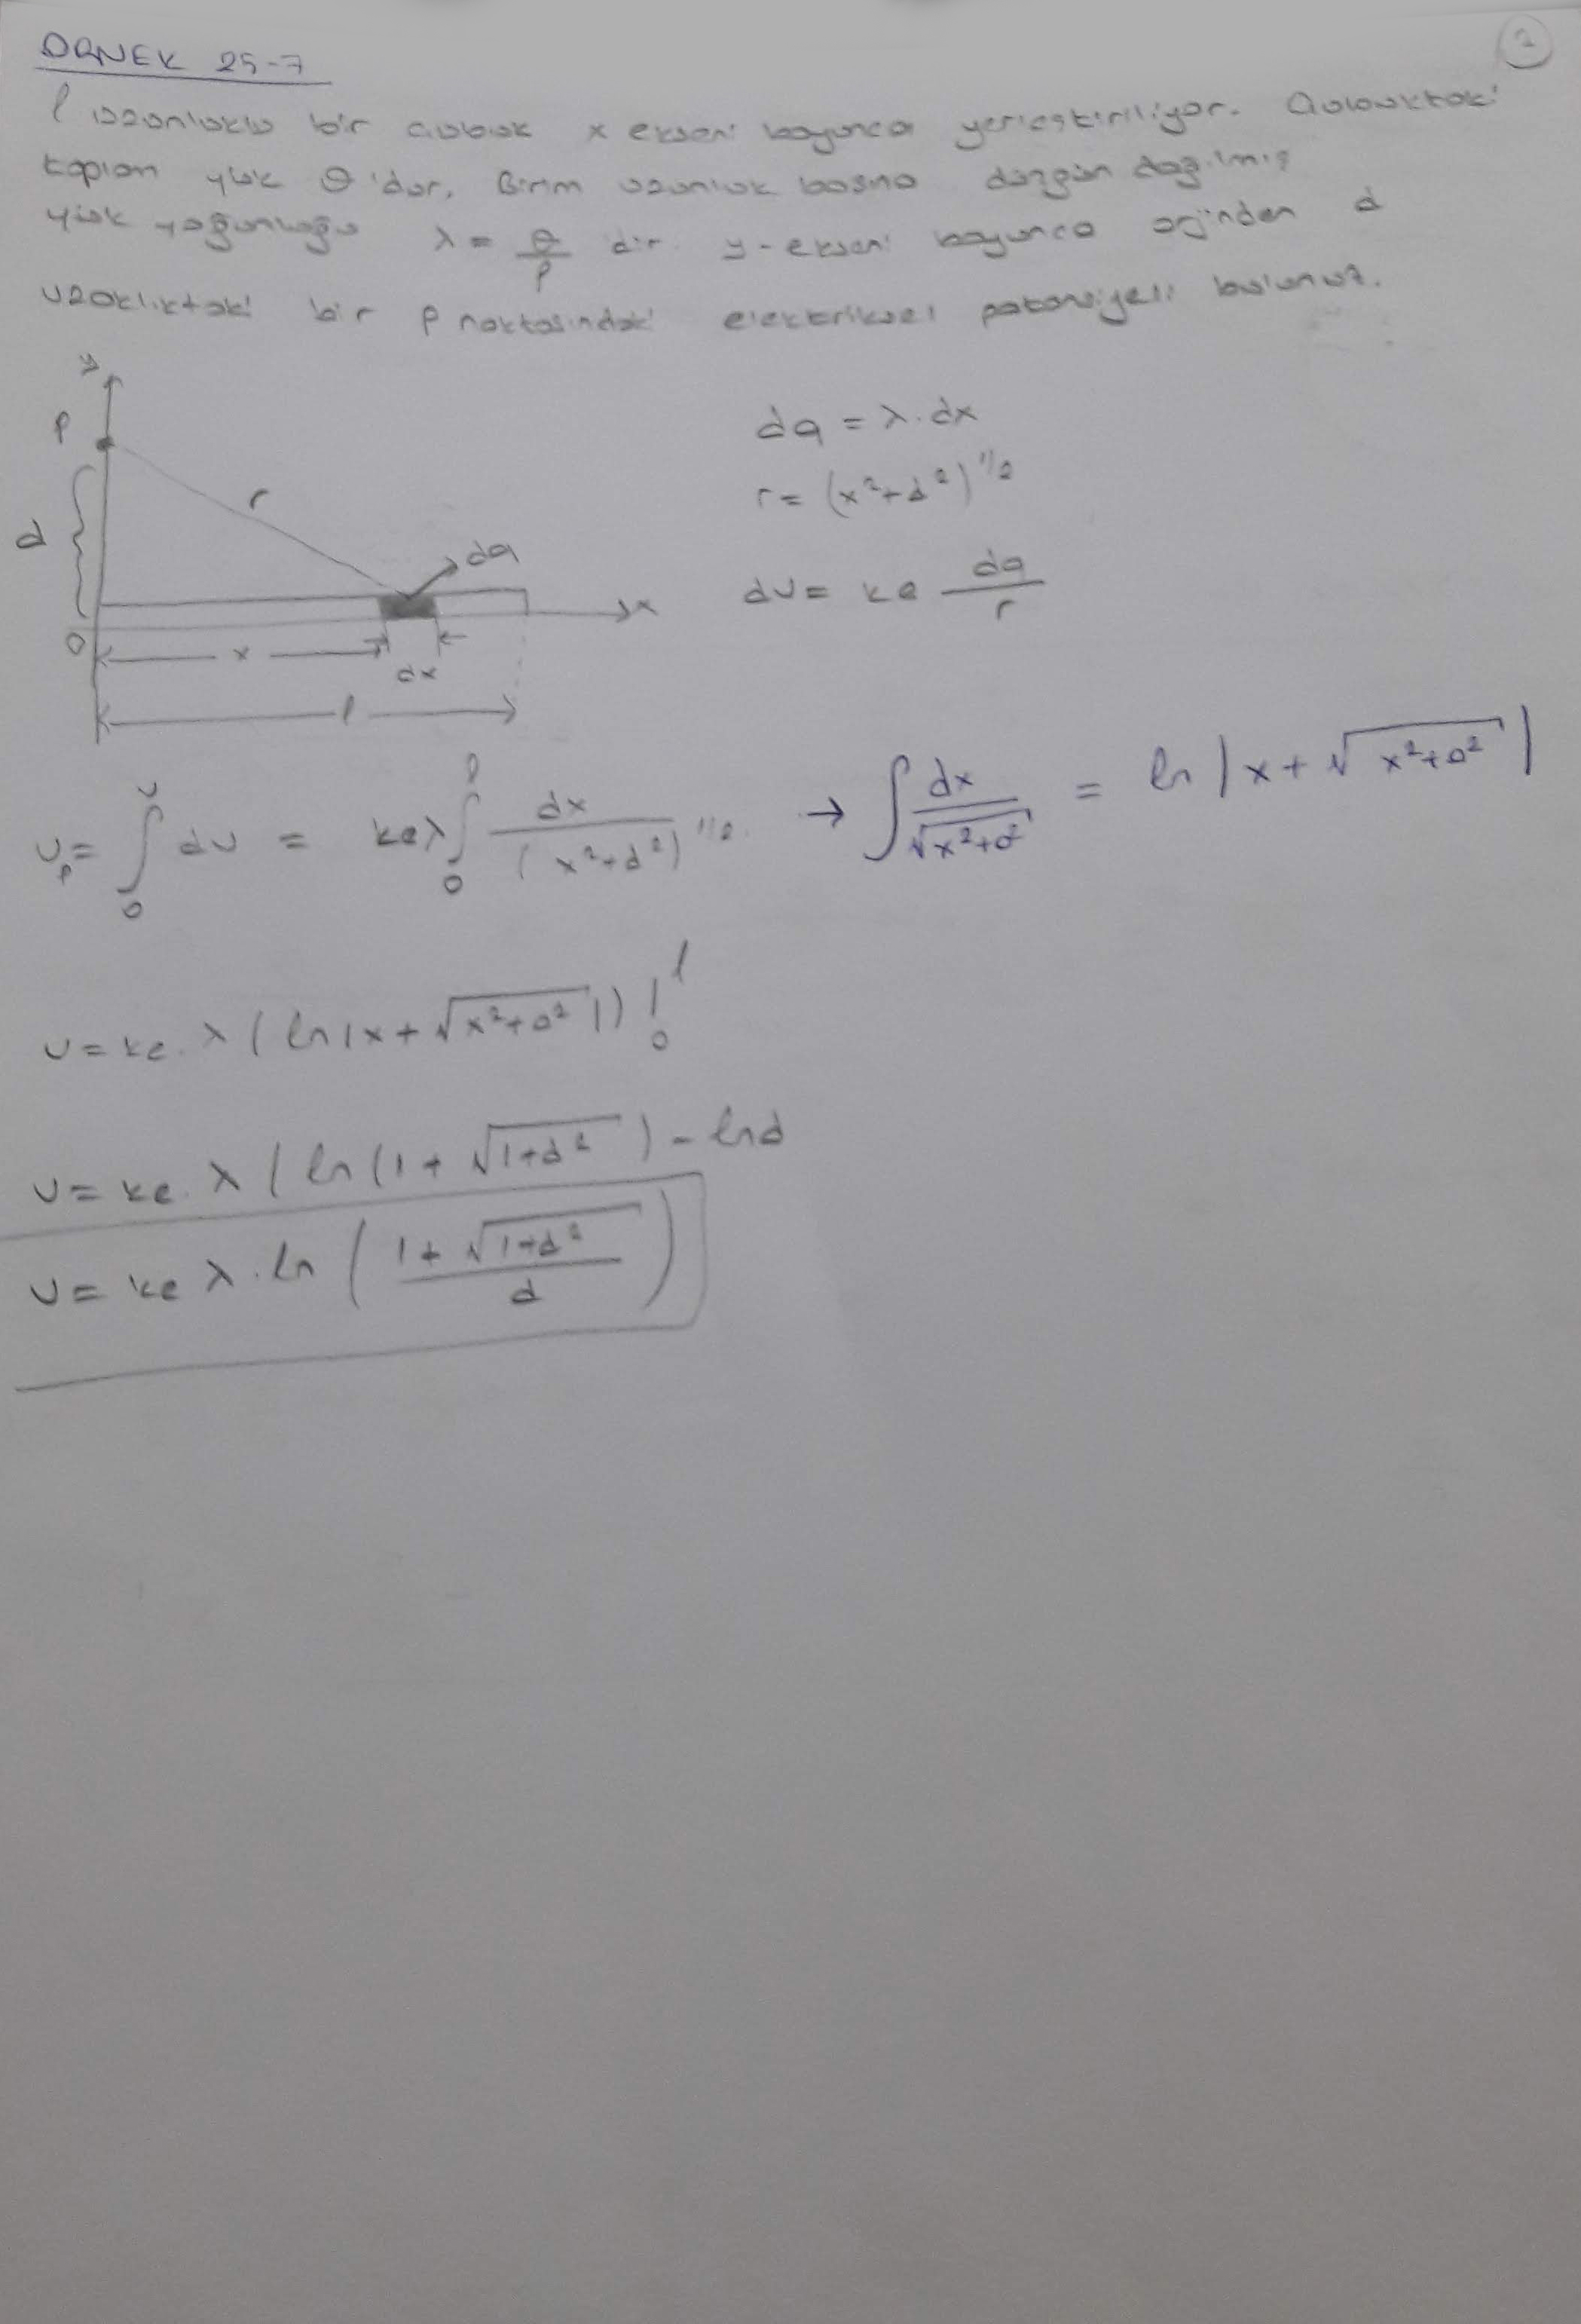 2
ÖRNEK 25-7
l uzunluklu bir çubuk x ekseni boyunca yerleştiriliyor. Çubuktaki
toplam yük Q'dur. Birim uzunluk başına düzgün dağılmış
yük yoğunluğu λ = Q/l dir. y-ekseni boyunca orjinden d
uzaklıktaki bir P noktasındaki elektriksel potansiyeli bulunuz.
y
P
d
r
dq
x
0
x
dx
l
dq = λ.dx
r = (x²+d²)^1/2
dv = ke dq/r
Vp = ∫₀^v dv = keλ ∫₀^l dx/(x²+d²)^1/2 → ∫ dx/√(x²+a²) = ln |x+√(x²+a²)|
v = ke. λ (ln|x+√(x²+a²)|) |₀^l
v = ke. λ (ln(l+√(l+d²)) - lnd
v = ke λ. ln ( (l+√(l+d²))/d )